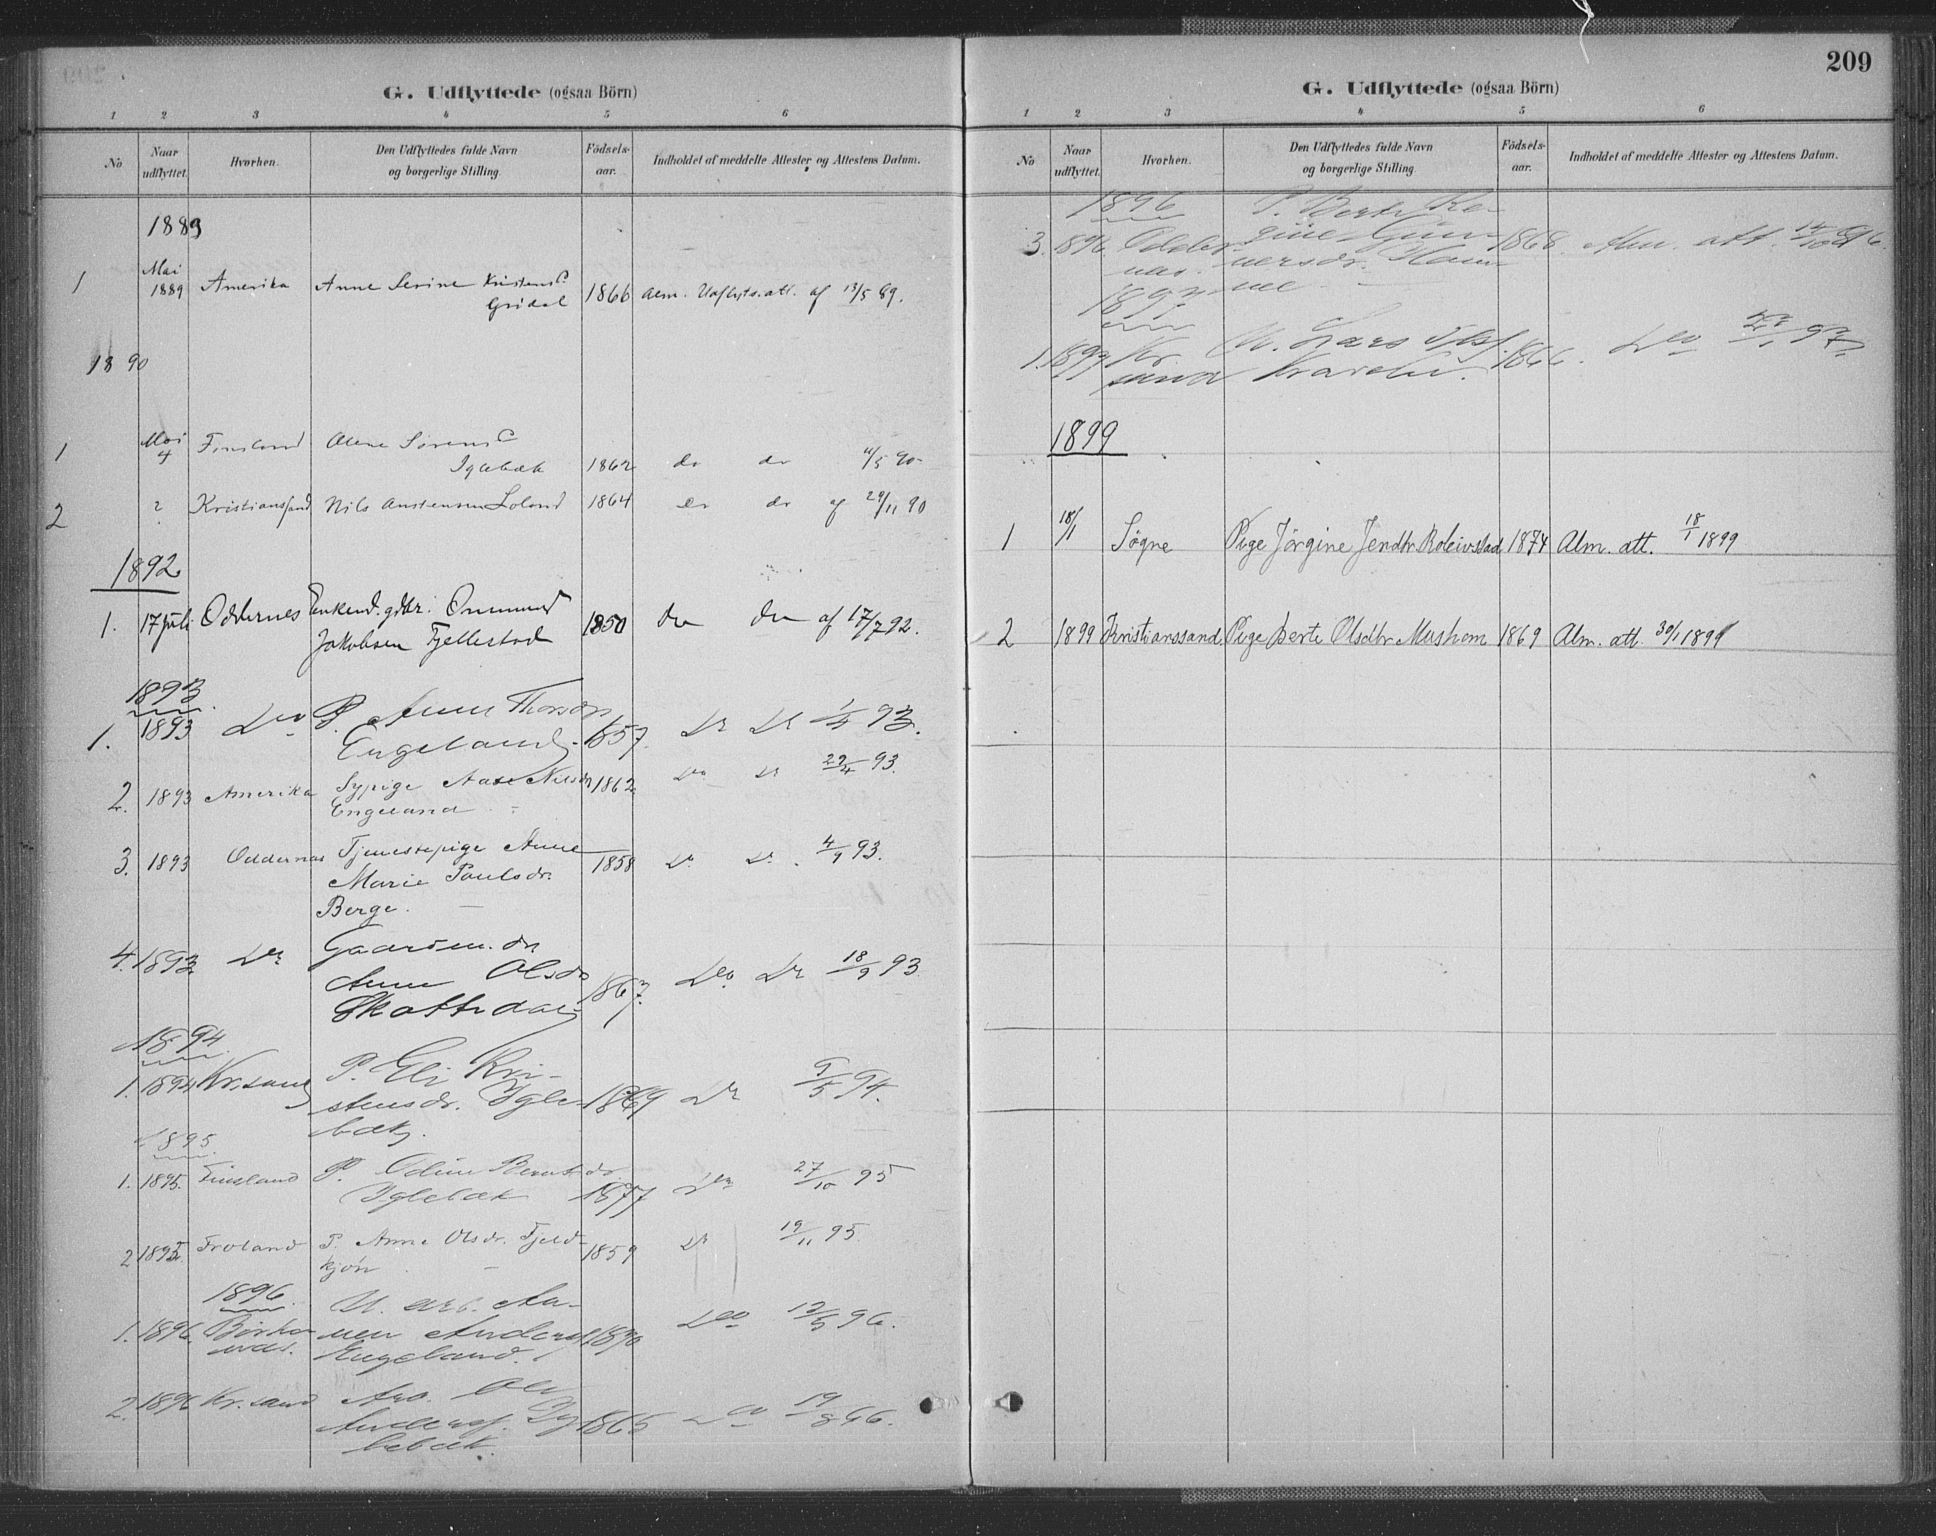 G. Udflyttede (ogsaa Börn)
1 2 3 4 5 6
No Naar udflyttet. Hvorhen. Den Udflyttedes fulde Navn og borgerlige Stilling. Födsels-aar. Indholdet af meddelte Attester og Attestens Datum.
1889
1 Mai 1889 Amerika Anne Serine Kristensd. 1866 Alm. Udflytn. att. af 13/5 89.
Grödal
1890
1 Mai 4 Finsland Olene Sørensd.
Iglebæk 1862 do do 4/5 90
2 ? Kristianssand Nils Anstensen Loland 1864 do do af 29/11 90
1892
1. 17 juli Oddernes Enkemd. gdbr. Ommund
Jakobsen Fjellestad 1850 do do af 17/7 92.
1893
1. 1893 Do P. Anne Thorsdr
Engeland. 1857. Do Do 1/4 93.
2. 1893 Amerika Sypige Aase Nilsdr 1862 Do Do 22/4 93.
Engeland
3. 1893 Oddernes Tjenestepige Anne 1858 Do Do. 4/9 93.
Marie Paulsdr.
Berge.
4. 1893 Do Gaardm. dr
Anne Olsdr 1867. Do Do 18/9 93
Skattedal
1894
1. 1894 Kr.sand P. Eli Kri-
stensdr. Igle- 1869 Do 9/5 94.
bæk.
1895.
1. 1895. Finsland P. Odine Berntsdr
Iglebæk 1877 Do 27/10 95
2 1895. Froland P. Anne Olsdr. Fjeld- 1859 Do 19/11 95
kjøn
1896.
U. arb. Aa-
1. 1896. nen Anders 1870 Do 12/5 96.
Engeland.
2. 1896 Kr.sand Arb. Ole
Andersf. Ig 1865 Do 19/8 96.
lebæk.
209
G. Udflyttede (ogsaa Börn)
1 2 3 4 5 6
No Naar udflyttet. Hvorhen. Den Udflyttedes fulde Navn og borgerlige Stilling. Födsels-aar. Indholdet af meddelte Attester og Attestens Datum.
1896
P. Berte Re-
3. 1896 Odder gine Gun- 1868. Alm. att. 14/10 96.
nes. nersdr. Hom-
me
1897
1. 1897 Kr. U. Lars 1866. Do 97.
sand
1899
1 18/1 Søgne Pige Jörgine Jensdtr. Roleivstad 1874 Alm. att. 18/1 1899
2 1899 Kristianssand. Pige Berte Olsdtr. Mushom 1869 Alm. att. 30/1 1899